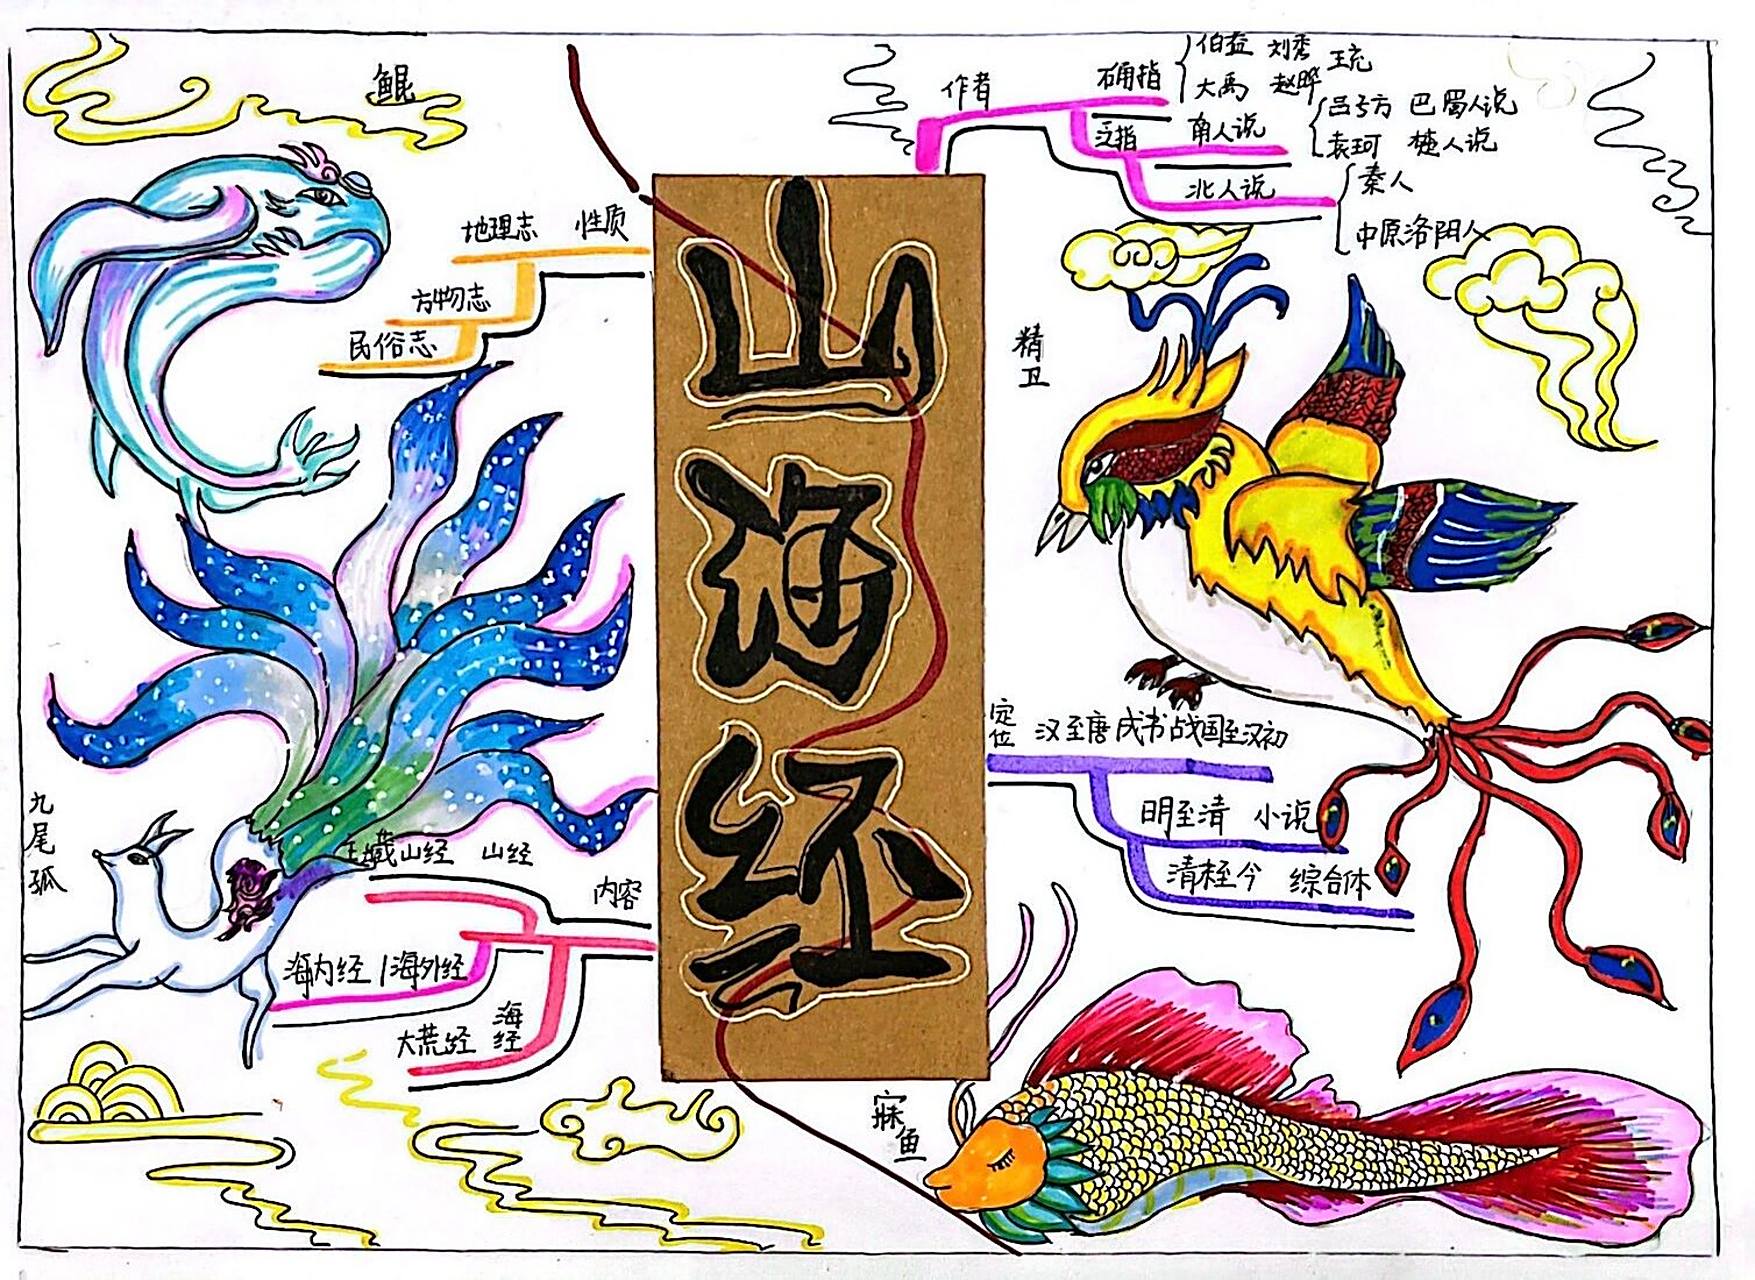 山海经
鲲
性质
地理志
方物志
民俗志
作者
确指
伯益 刘秀 王充
大禹 赵晔
泛指
南人说
吕子方 巴蜀人说
袁珂 楚人说
北人说
秦人
中原洛阳人
精卫
定位
汉至唐 成书战国至汉初
明至清 小说
清末至今 综合体
九尾狐
内容
藏山经 山经
海内经/海外经
大荒经
海经
寐鱼